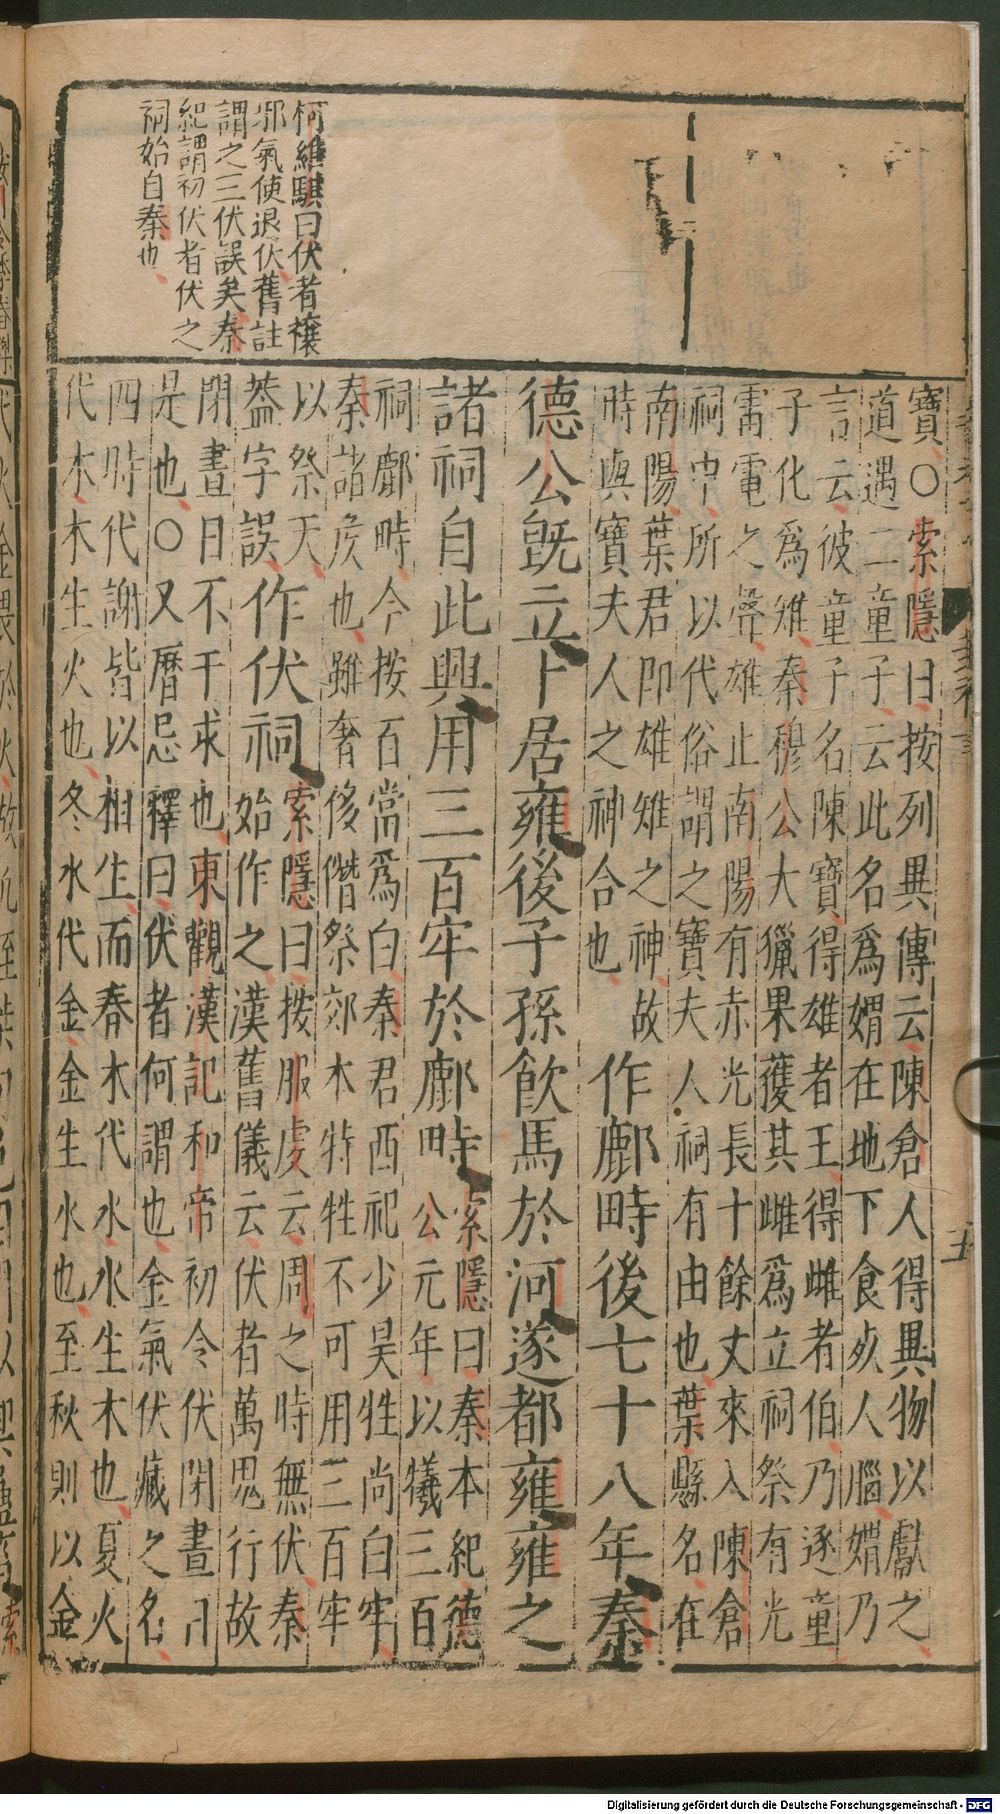 柯維騏曰伏者禳
邪氣使退伏舊註
謂之三伏誤矣秦
紀謂初伏者伏之
祠始自秦也
寶○索隱曰按列異傳云陳倉人得異物以獻之
道遇二童子云此名爲媦在地下食死人腦媦乃
言云彼童子名陳寶得雄者王得雌者伯乃逐童
子化爲雉秦穆公大獵果獲其雌爲立祠祭有光
雷電之聲雄止南陽有赤光長十餘丈來入陳倉
祠中所以代俗謂之寶夫人祠有由也葉縣名在
南陽葉君即雄雉之神故
時與寶夫人之神合也
作鄜畤後七十八年秦
德公旣立卜居雍後子孫飲馬於河遂都雍雍之
諸祠自此興用三百牢於鄜畤
索隱曰秦本紀德
公元年以犧三百
祠鄜畤今按百當爲白秦君西祀少昊牲尚白牢
秦諸侯也雖奢侈僭祭郊本特牲不可用三百牢
以祭天
葢字誤
作伏祠
索隱曰按服虔云周之時無伏秦
始作之漢舊儀云伏者萬鬼行故
閉晝日不干求也東觀漢記和帝初令伏閉晝日
是也○又曆忌釋曰伏者何謂也金氣伏藏之名
四時代謝皆以相生而春木代水水生木也夏火
代木木生火也冬水代金金生水也至秋則以金
五
Digitalisierung gefördert durch die Deutsche Forschungsgemeinschaft - DFG